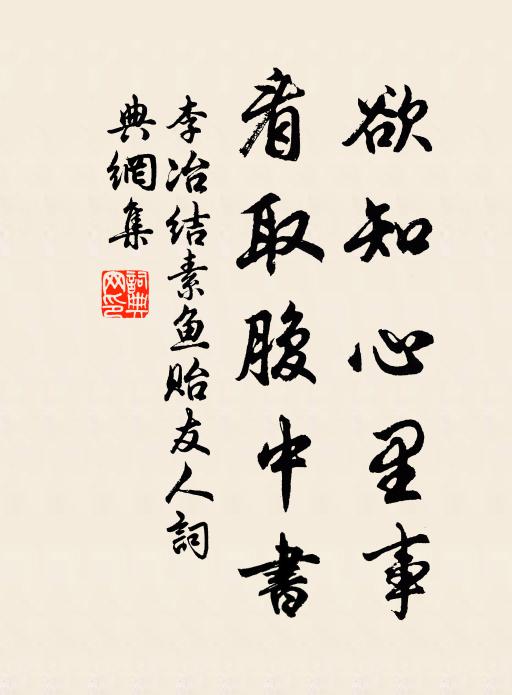 欲知心里事
看取腹中書
李冶结素魚贻友人詞
典網集
詞典
网印